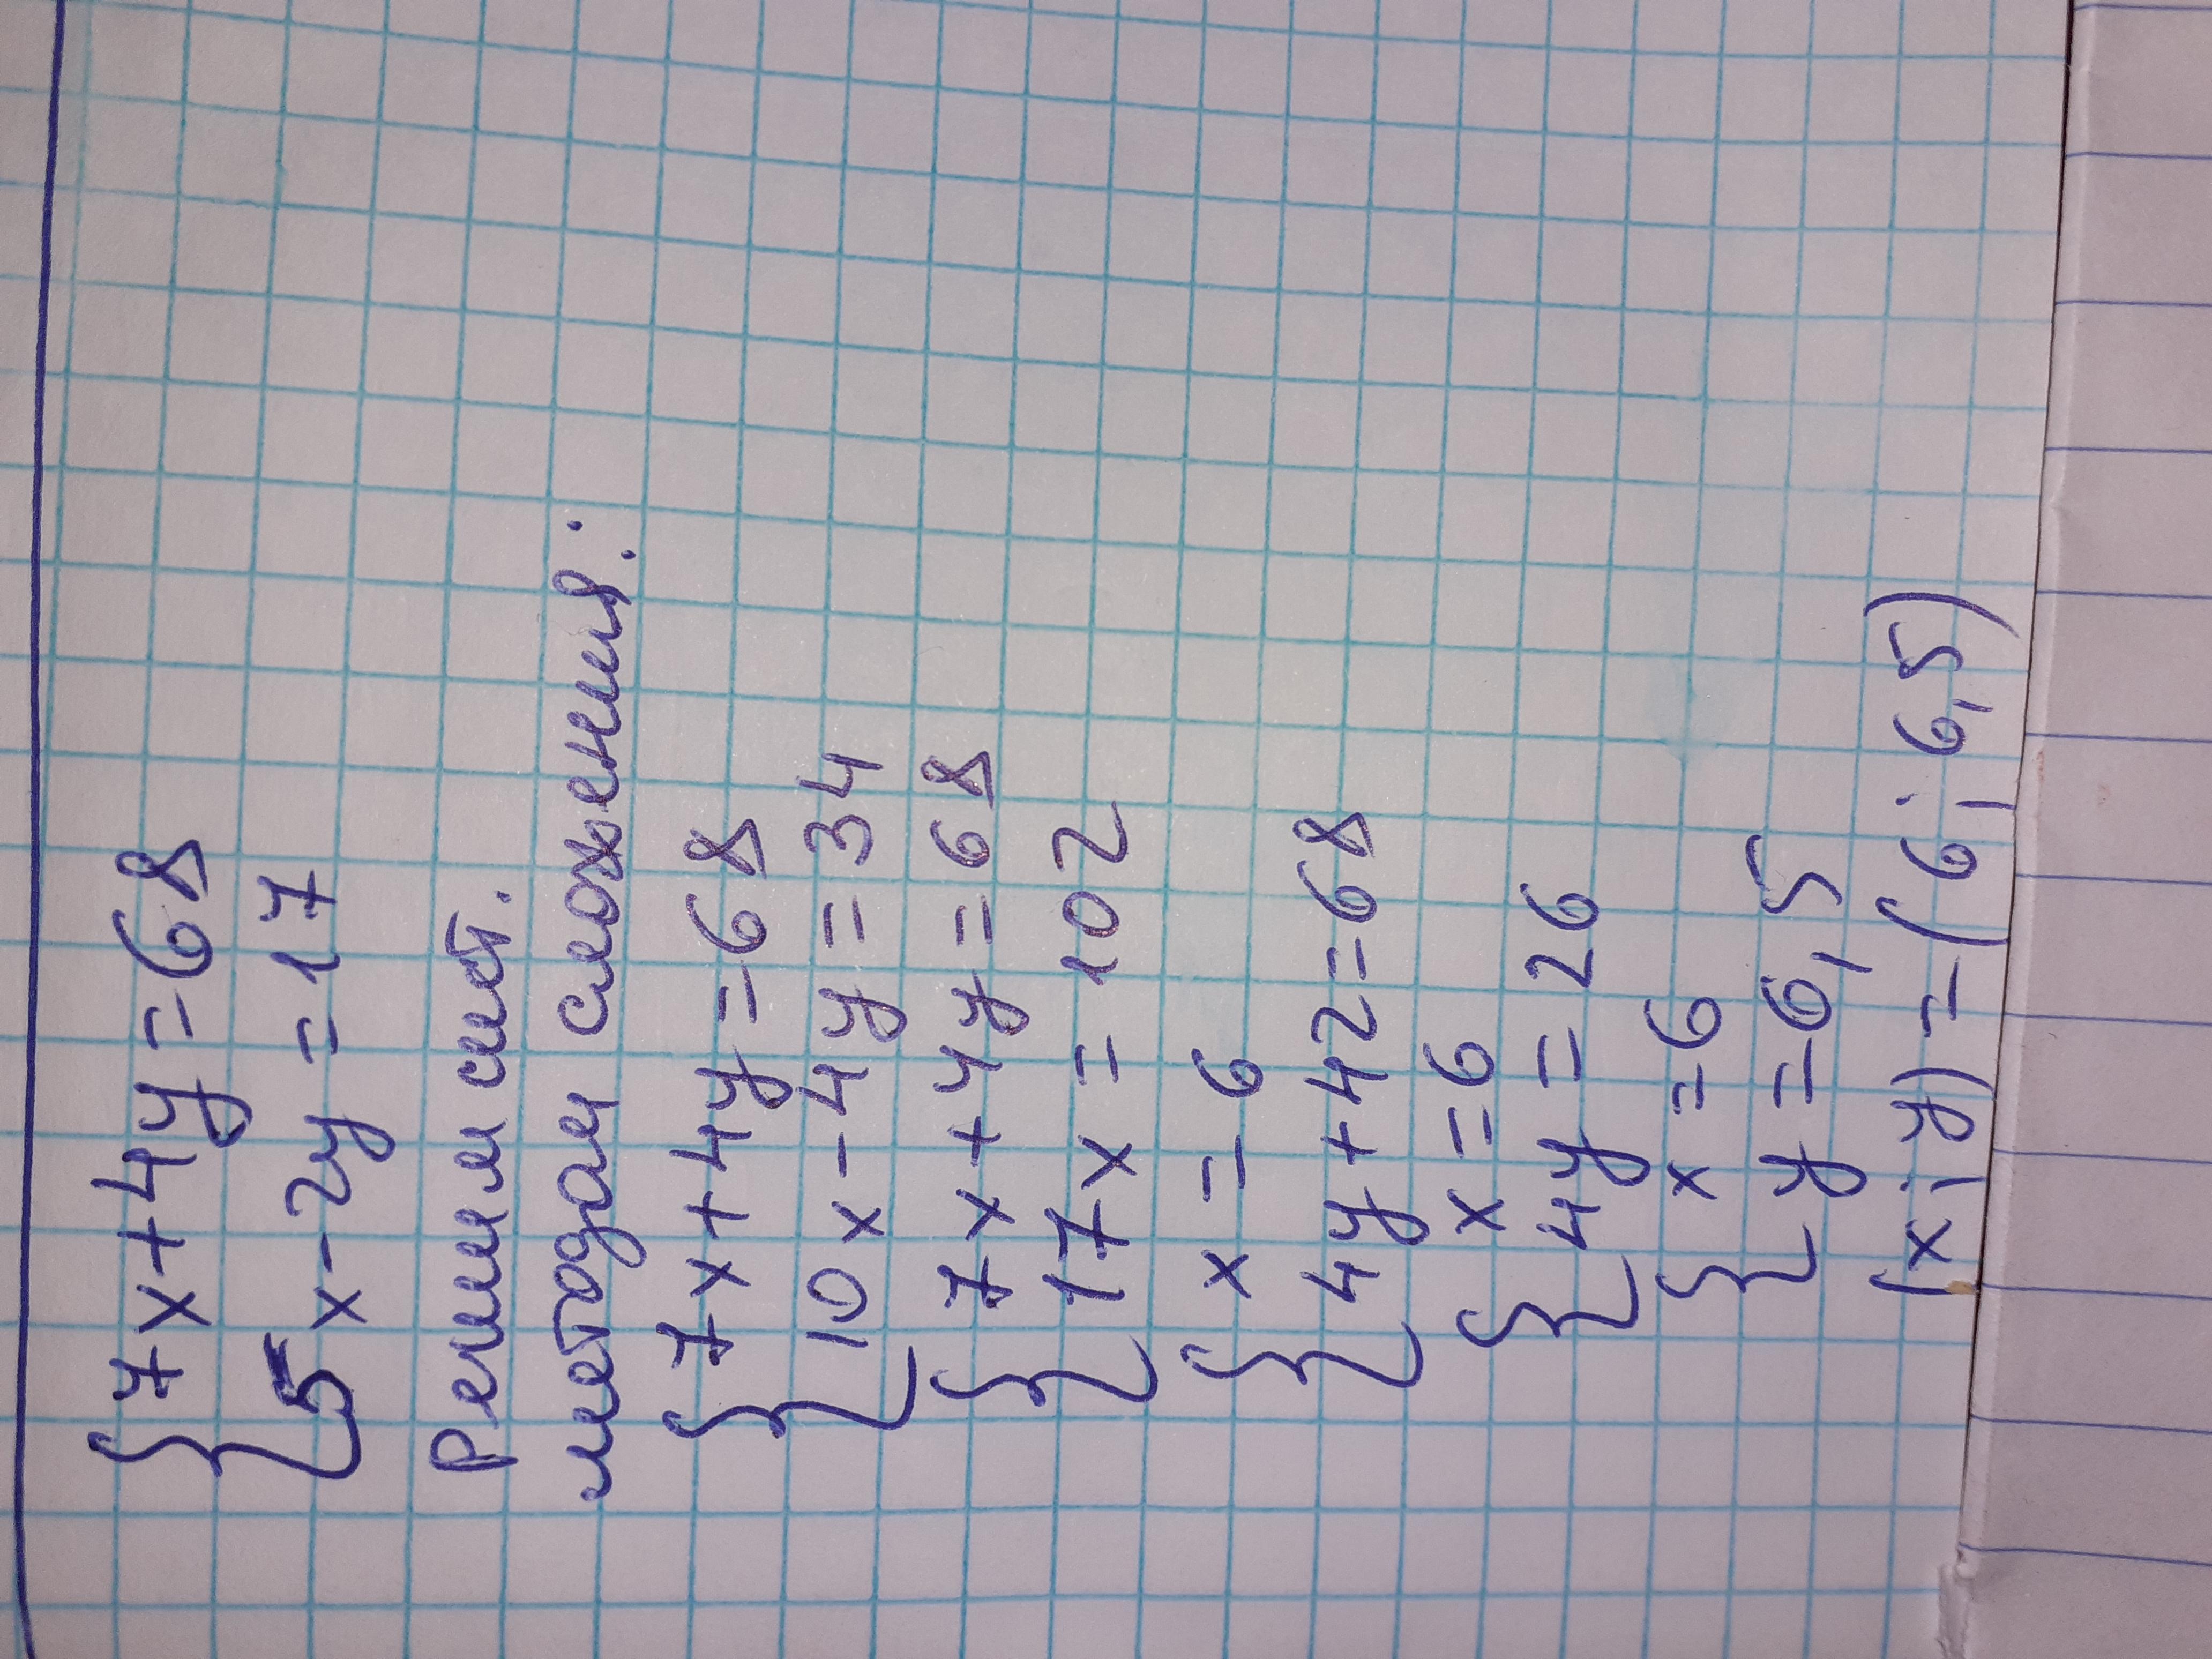 7x+4y=68
5x-2y=17
Решим сист.
методом сложения:
7x+4y=68
10x-4y=34
7x+4y=68
17x=102
x=6
4y+42=68
x=6
4y=26
x=6
y=6,5
(x;y)=(6;6,5)